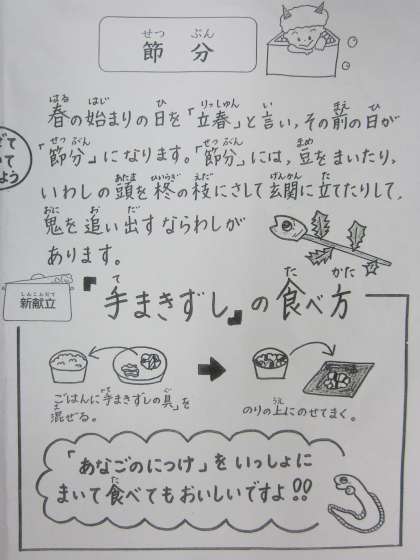 節分
春の始まりの日を「立春」と言い、その前の日が
「節分」になります。「節分」には、豆をまいたり、
いわしの頭を柊の枝にさして玄関に立てたりして、
鬼を追い出すならわしが
あります。
新献立
『手まきずし』の食べ方
ごはんに「手まきずしの具」を
混ぜる。
のりの上にのせてまく。
「あなごのにつけ」をいっしょに
まいて食べてもおいしいですよ!!